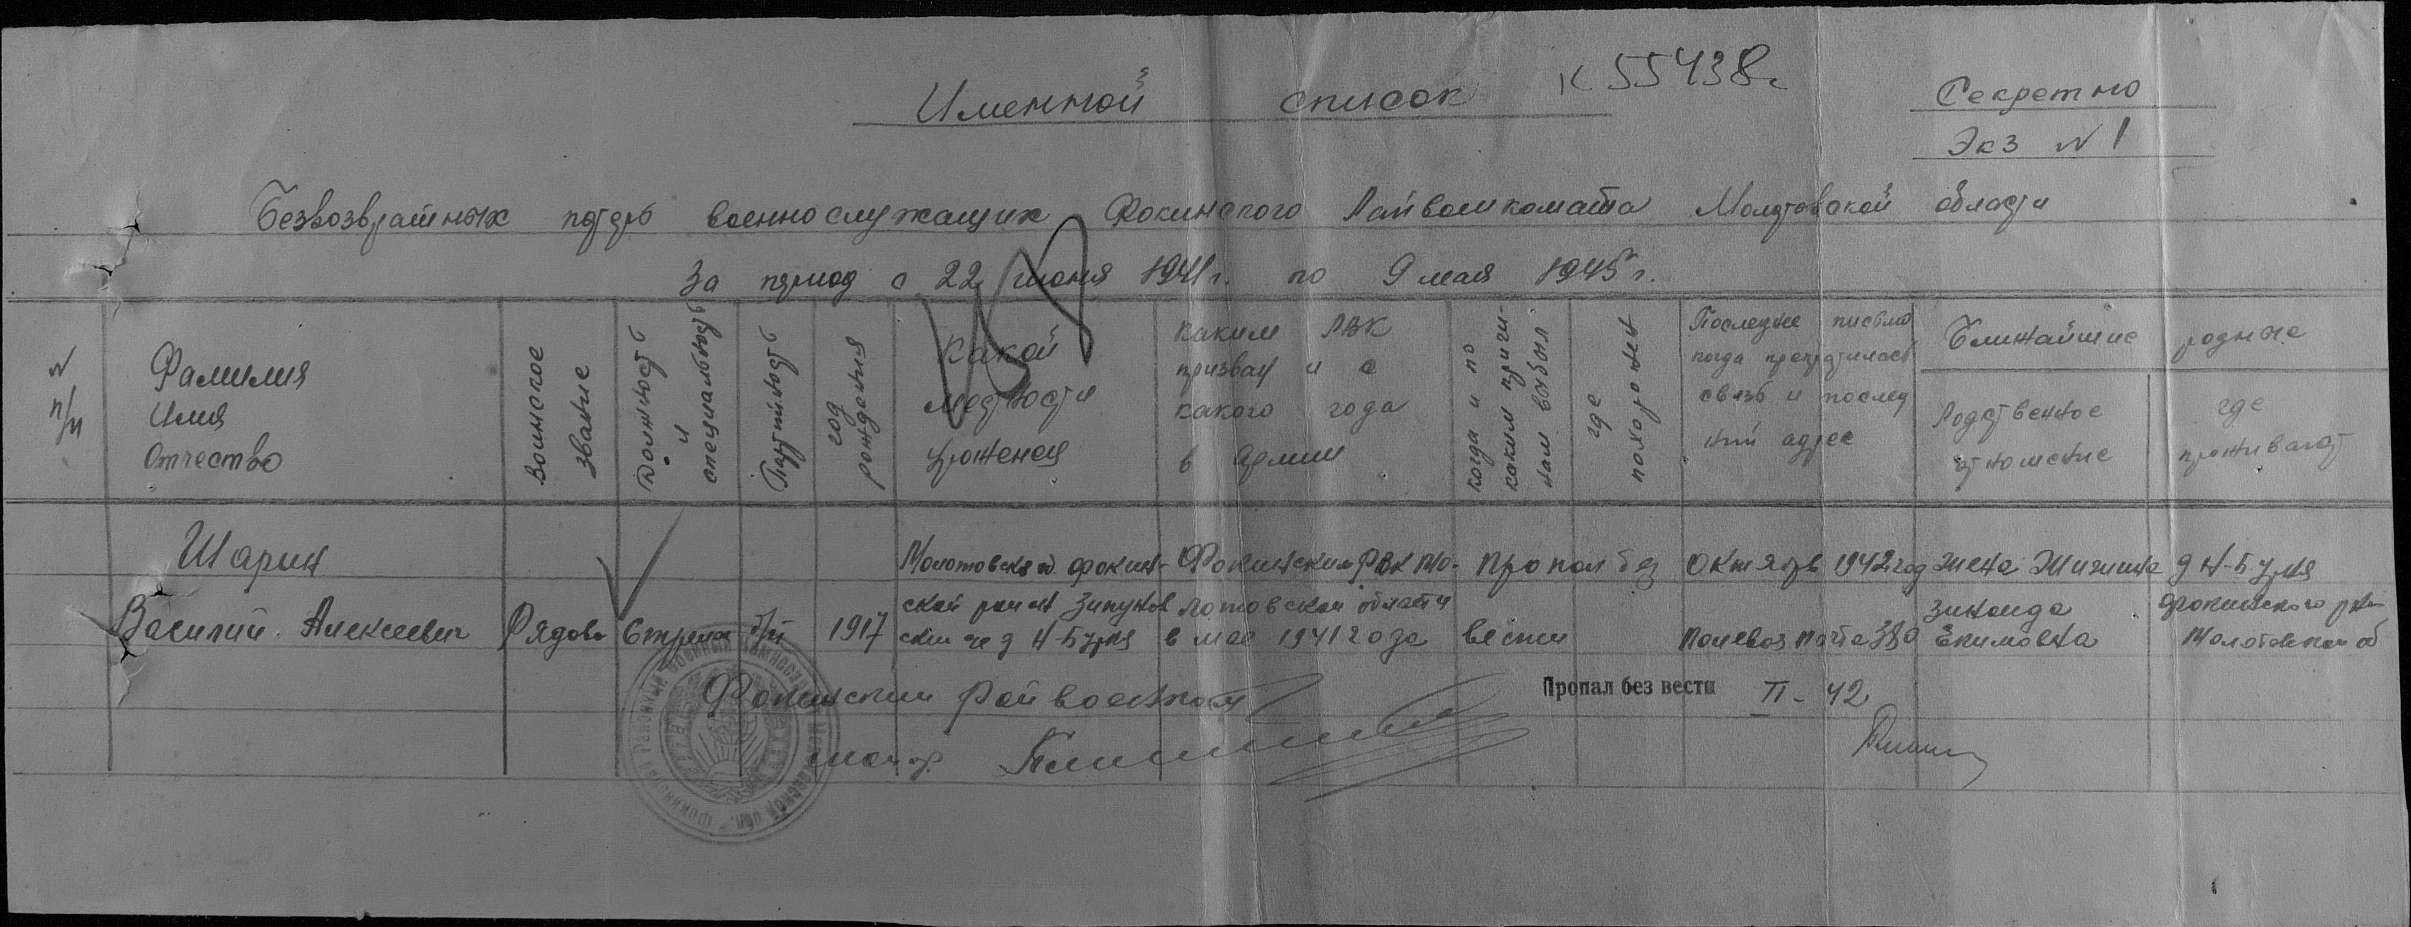 Именной список к 55438с
Секретно
Экз № 1
Безвозвратных потерь военнослужащих Фокинского Райвоенкомата Молотовской области
За период с 22 июня 1941 г. по 9 мая 1945 г.
№ п/п
Фамилия
Имя
Отчество
Воинское звание
Должность и специальность
Партийность
год рождения
Какой
местности
уроженец
Каким РВК
призван и с
какого года
в армии
когда и по
каким причи-
нам выбыл
где похоронен
Последнее письмо
когда прекратилась
связь и послед
ний адрес
Ближайшие родные
Родственное
отношение
где
проживают
Шарин
Василий Алексеевич
Рядово
Стрелок
б/п
1917
Молотовской Фокин-
ской район Зипунов
ский с/с д Н-Бузмя
Фокинским РВК Мо-
лотовской области
в мае 1941 года
Пропал без
вести
Октябрь 1942 год
Полевая почта 380
жена Жигина
Зинаида
Екимовна
д Н-Бузмя
Фокинского р-на
Молотовской об
Фокинский Райвоенком
майор
Пропал без вести II - 42